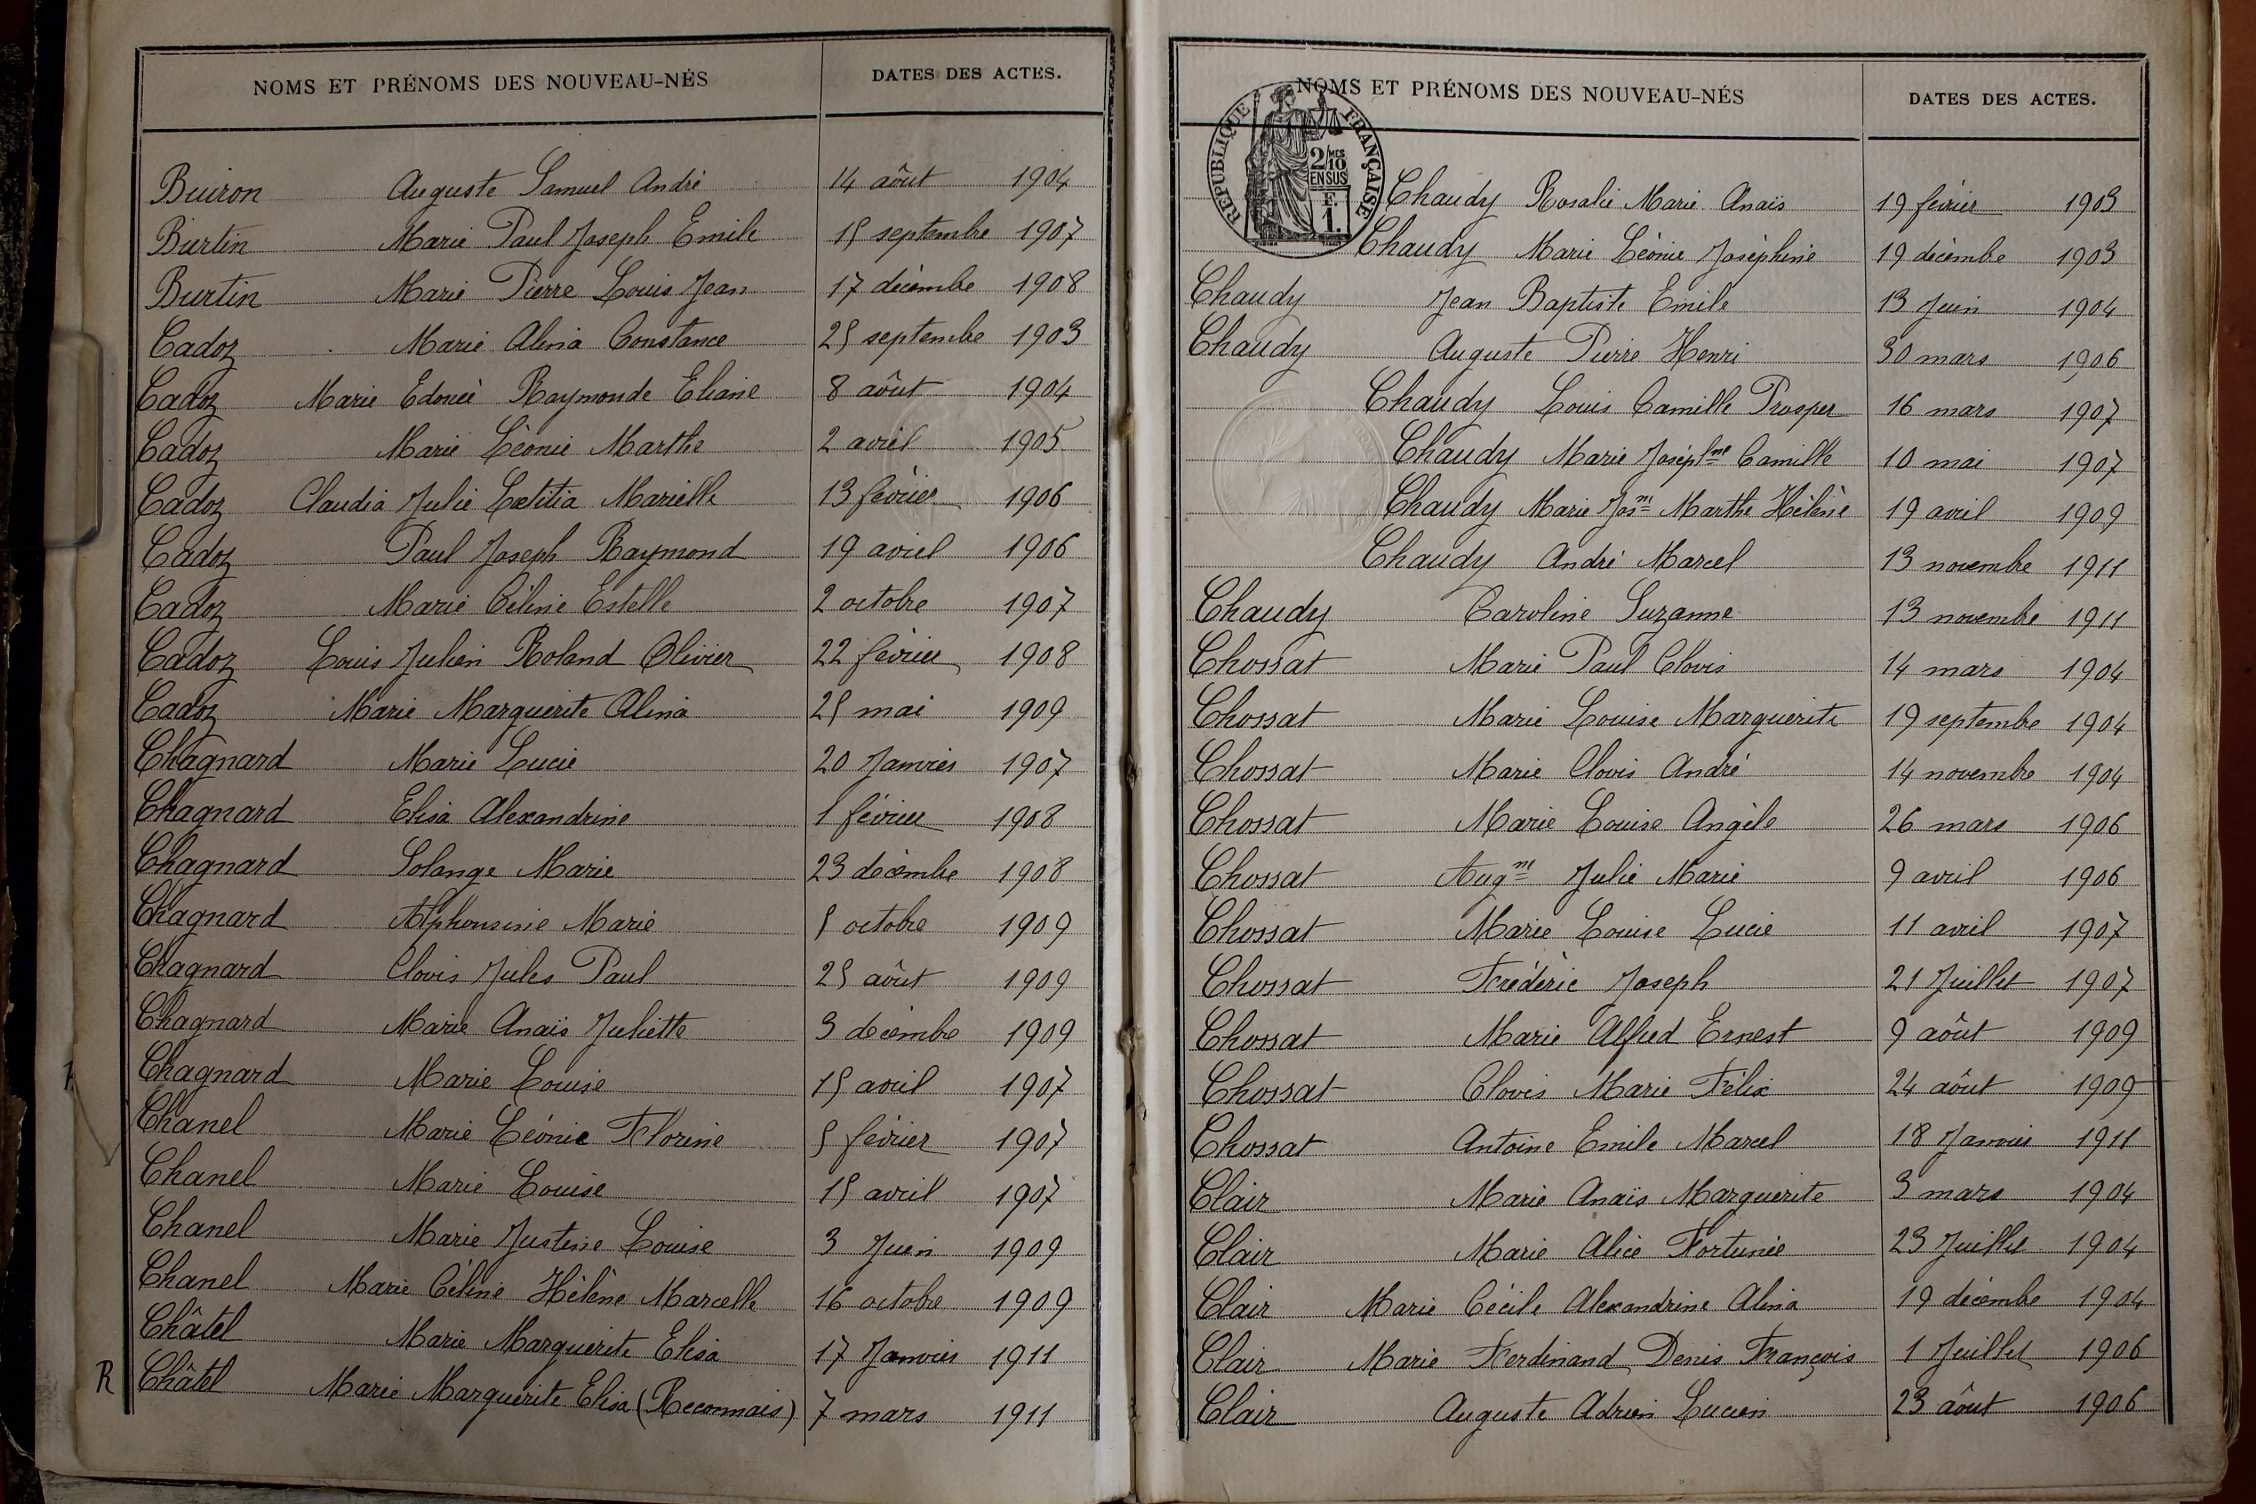 NOMS ET PRÉNOMS DES NOUVEAU-NÉS DATES DES ACTES.
Buiron Auguste Samuel André 14 aôut 1904
Burtin Marie Paul Joseph Emile 15 septembre 1907
Burtin Marie Pierre Louis Jean 17 décembre 1908
Cadoz Marie Alina Constance 25 septembre 1903
Cadoz Marie Edmée Raymonde Eliane 8 aôut 1904
Cadoz Marie Léonie Marthe 2 avril 1905
Cadoz Claudia Julie Lœtitia Marielle 13 février 1906
Cadoz Paul Joseph Raymond 19 avril 1906
Cadoz Marie Céline Estelle 2 octobre 1907
Cadoz Louis Julien Roland Olivier 22 février 1908
Cadoz Marie Marguerite Alina 25 mai 1909
Chagnard Marie Lucie 20 Janvier 1907
Chagnard Elisa Alexandrine 1 février 1908
Chagnard Solange Marie 23 décembre 1908
Chagnard Alphonsine Marie 5 octobre 1909
Chagnard Clovis Jules Paul 25 aôut 1909
Chagnard Marie Anaïs Juliette 3 décembre 1909
Chagnard Marie Louise 15 avril 1907
Chanel Marie Léonie Florine 5 février 1907
Chanel Marie Louise 15 avril 1907
Chanel Marie Justine Louise 3 Juin 1909
Chanel Marie Céline Hélène Marcelle 16 octobre 1909
Châtel Marie Marguerite Elisa 17 Janvier 1911
R Châtel Marie Marguerite Elisa (Reconnais) 7 mars 1911
NOMS ET PRÉNOMS DES NOUVEAU-NÉS DATES DES ACTES.
RÉPUBLIQUE FRANÇAISE
2/10 MES
EN SUS
F.
1.
Chaudy Rosalie Marie Anaïs 19 février 1903
Chaudy Marie Léonie Joséphine 19 décembre 1903
Chaudy Jean Baptiste Emile 13 Juin 1904
Chaudy Auguste Pierre Henri 30 mars 1906
Chaudy Louis Camille Prosper 16 mars 1907
Chaudy Marie Joséphne Camille 10 mai 1907
Chaudy Marie Josne Marthe Hélène 19 avril 1909
Chaudy André Marcel 13 novembre 1911
Chaudy Caroline Suzanne 13 novembre 1911
Chossat Marie Paul Clovis 14 mars 1904
Chossat Marie Louise Marguerite 19 septembre 1904
Chossat Marie Clovis André 14 novembre 1904
Chossat Marie Louise Angèle 26 mars 1906
Chossat Augne Julie Marie 9 avril 1906
Chossat Marie Louise Lucie 11 avril 1907
Chossat Frédéric Joseph 21 Juillet 1907
Chossat Marie Alfred Ernest 9 aôut 1909
Chossat Clovis Marie Félix 24 aôut 1909
Chossat Antoine Emile Marcel 18 Janvier 1911
Clair Marie Anaïs Marguerite 3 mars 1904
Clair Marie Alice Fortunée 23 Juillet 1904
Clair Marie Cécile Alexandrine Alina 19 décembre 1904
Clair Marie Ferdinand Denis François 1 Juillet 1906
Clair Auguste Adrien Lucien 23 aôut 1906